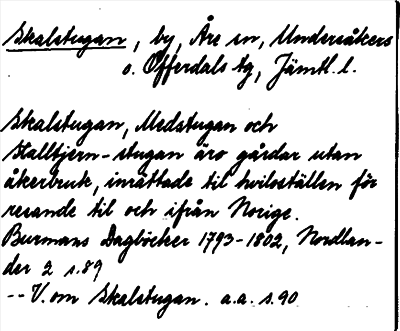 Skalstugan, by, Åre sn, Undersåkers
o. Offerdals tg, Jämtl. l.
Skalstugan, Medstugan och
Halltjern-stugan äro gårdar utan
åkerbruk, inrättade til hviloställen för
resande til och ifrån Norige.
Burmans Dagböcker 1793-1802, Nordlan-
der 2 s. 89
-- V. om Skalstugan. a.a. s. 90